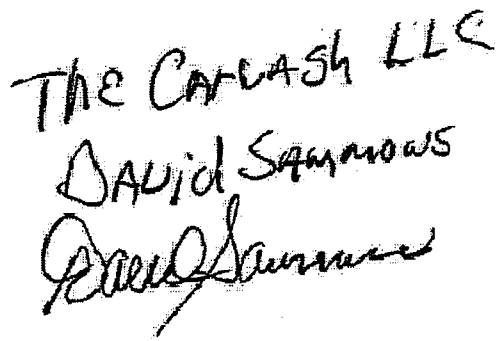 The CARWASh LLC
DAVid SAmmons
David Sammons